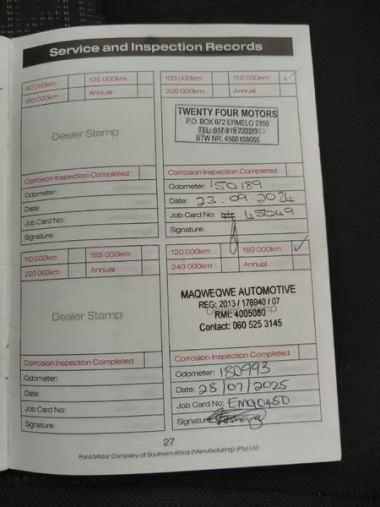 Service and Inspection Records
90 000km 135 000km
180 000km Annual
Dealer Stamp
Corrosion Inspection Completed
Odometer:
Date:
Job Card No:
Signature:
100 000km 150 000km ✓
200 000km Annual
TWENTY FOUR MOTORS
P.O. BOX 672 ERMELO 2350
TEL: 017 819 7222/3
BTW NR: 4560108056
Corrosion Inspection Completed
Odometer: 150189
Date: 23.09.2024
Job Card No: 45049
Signature:
110 000km 165 000km
220 000km Annual
Dealer Stamp
Corrosion Inspection Completed
Odometer:
Date:
Job Card No:
Signature:
120 000km 180 000km ✓
240 000km Annual
MAQWEQWE AUTOMOTIVE
REG: 2013 / 176940 / 07
RMI: 4005080
Contact: 060 525 3145
Corrosion Inspection Completed
Odometer: 180993
Date: 28/07/2025
Job Card No: EMQ0450
Signature:
27
Ford Motor Company of Southern Africa (Manufacturing) (Pty) Ltd